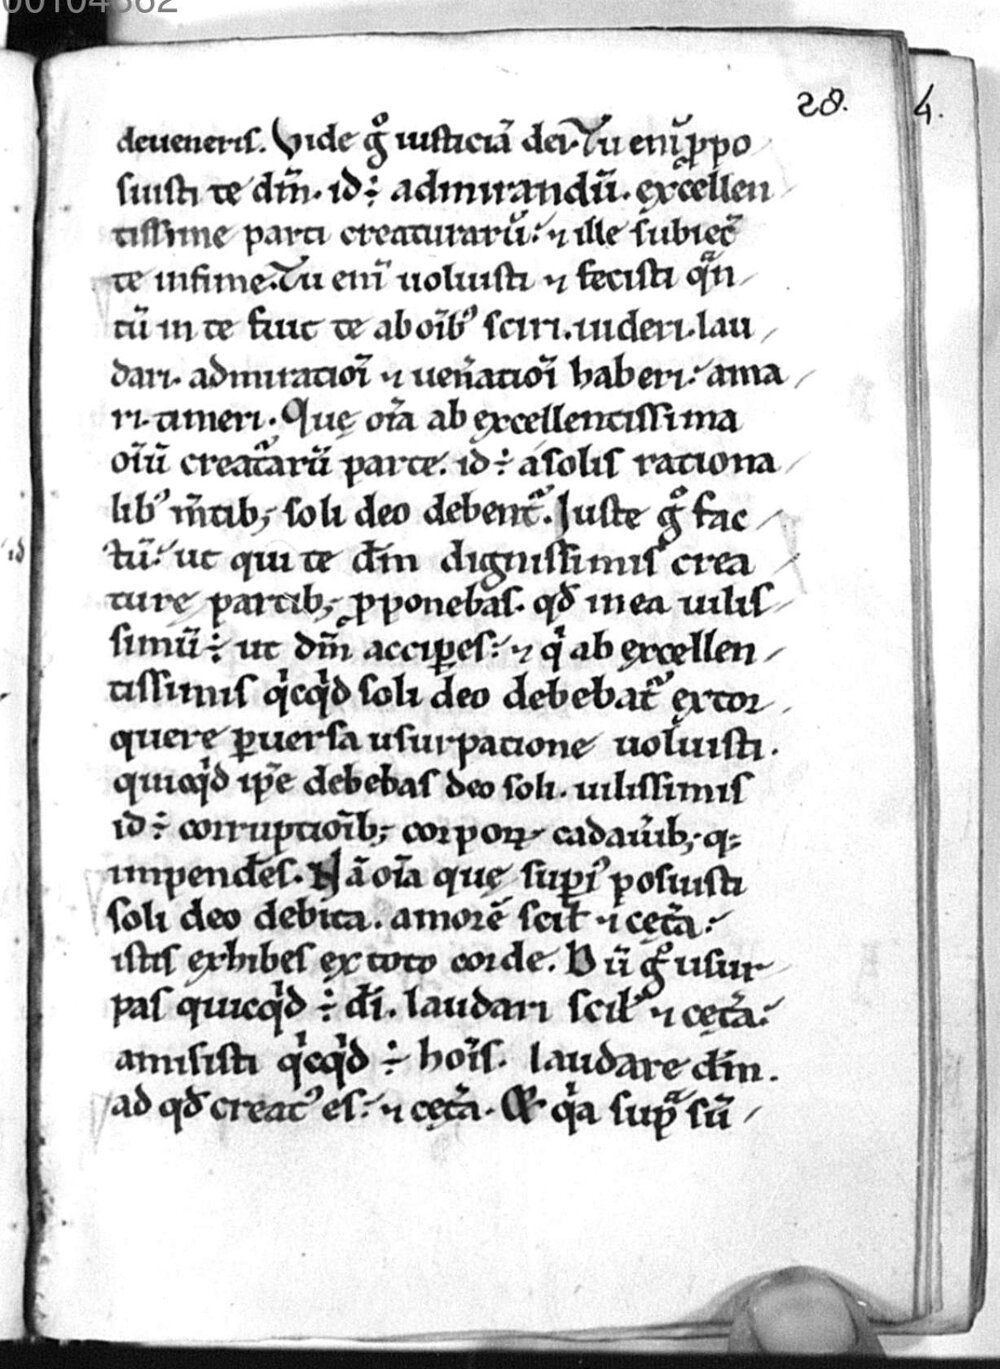 00104362
28. 4.
deueneris. Vide g̊ iusticiā dei. Tu eni᷒ ꝓpo
suisti te dm̄. id ÷ admirandū. excellen
tissime parti creaturarū: ⁊ ille subiec̄
te infime. Tu enī uoluisti ⁊ fecisti qᷓn
tū in te fuit te ab oīb᷒ sciri. uideri. lau
dari. admiratiōī ⁊ uen̄atiōī haberi: ama
ri. timeri. Que ̨ oīa ab excellentissima
oīū creatᷓarū parte. id ÷ a solis rationa
lib᷒ m̄tib; soli deo debent᷒. Juste g̊ fac
tū: ut qui te dm̄ dignissimis crea
turę partib; ꝓponebas. qd̄ in ea uilis
simū ÷ ut dm̄ acciꝑes: ⁊ qͥ ab excellen
tissimis qͥcqͥd soli deo debebat᷒ extor
quere ꝑuersa usurpatione uoluisti.
quicqͥd ip̄e debebas deo soli. uilissimis
id ÷ corruptioīb; corpoꝝ cadau̅ib; q;
impendes. Nā oīa quę suꝑi᷒ posuisti
soli deo debita. amorē scil̄ ⁊ cęt̄a:
istis exhibes ex toto corde. Dū g̊ usur
pas quicqͥd ÷ dī. laudari scil̄ ⁊ cęt̄a:
amisisti qͥcqͥd ÷ hoīs. laudare dm̄.
ad qd̄ creat᷒ es: ⁊ cęt̄a. Et qͥa supᷓ sū